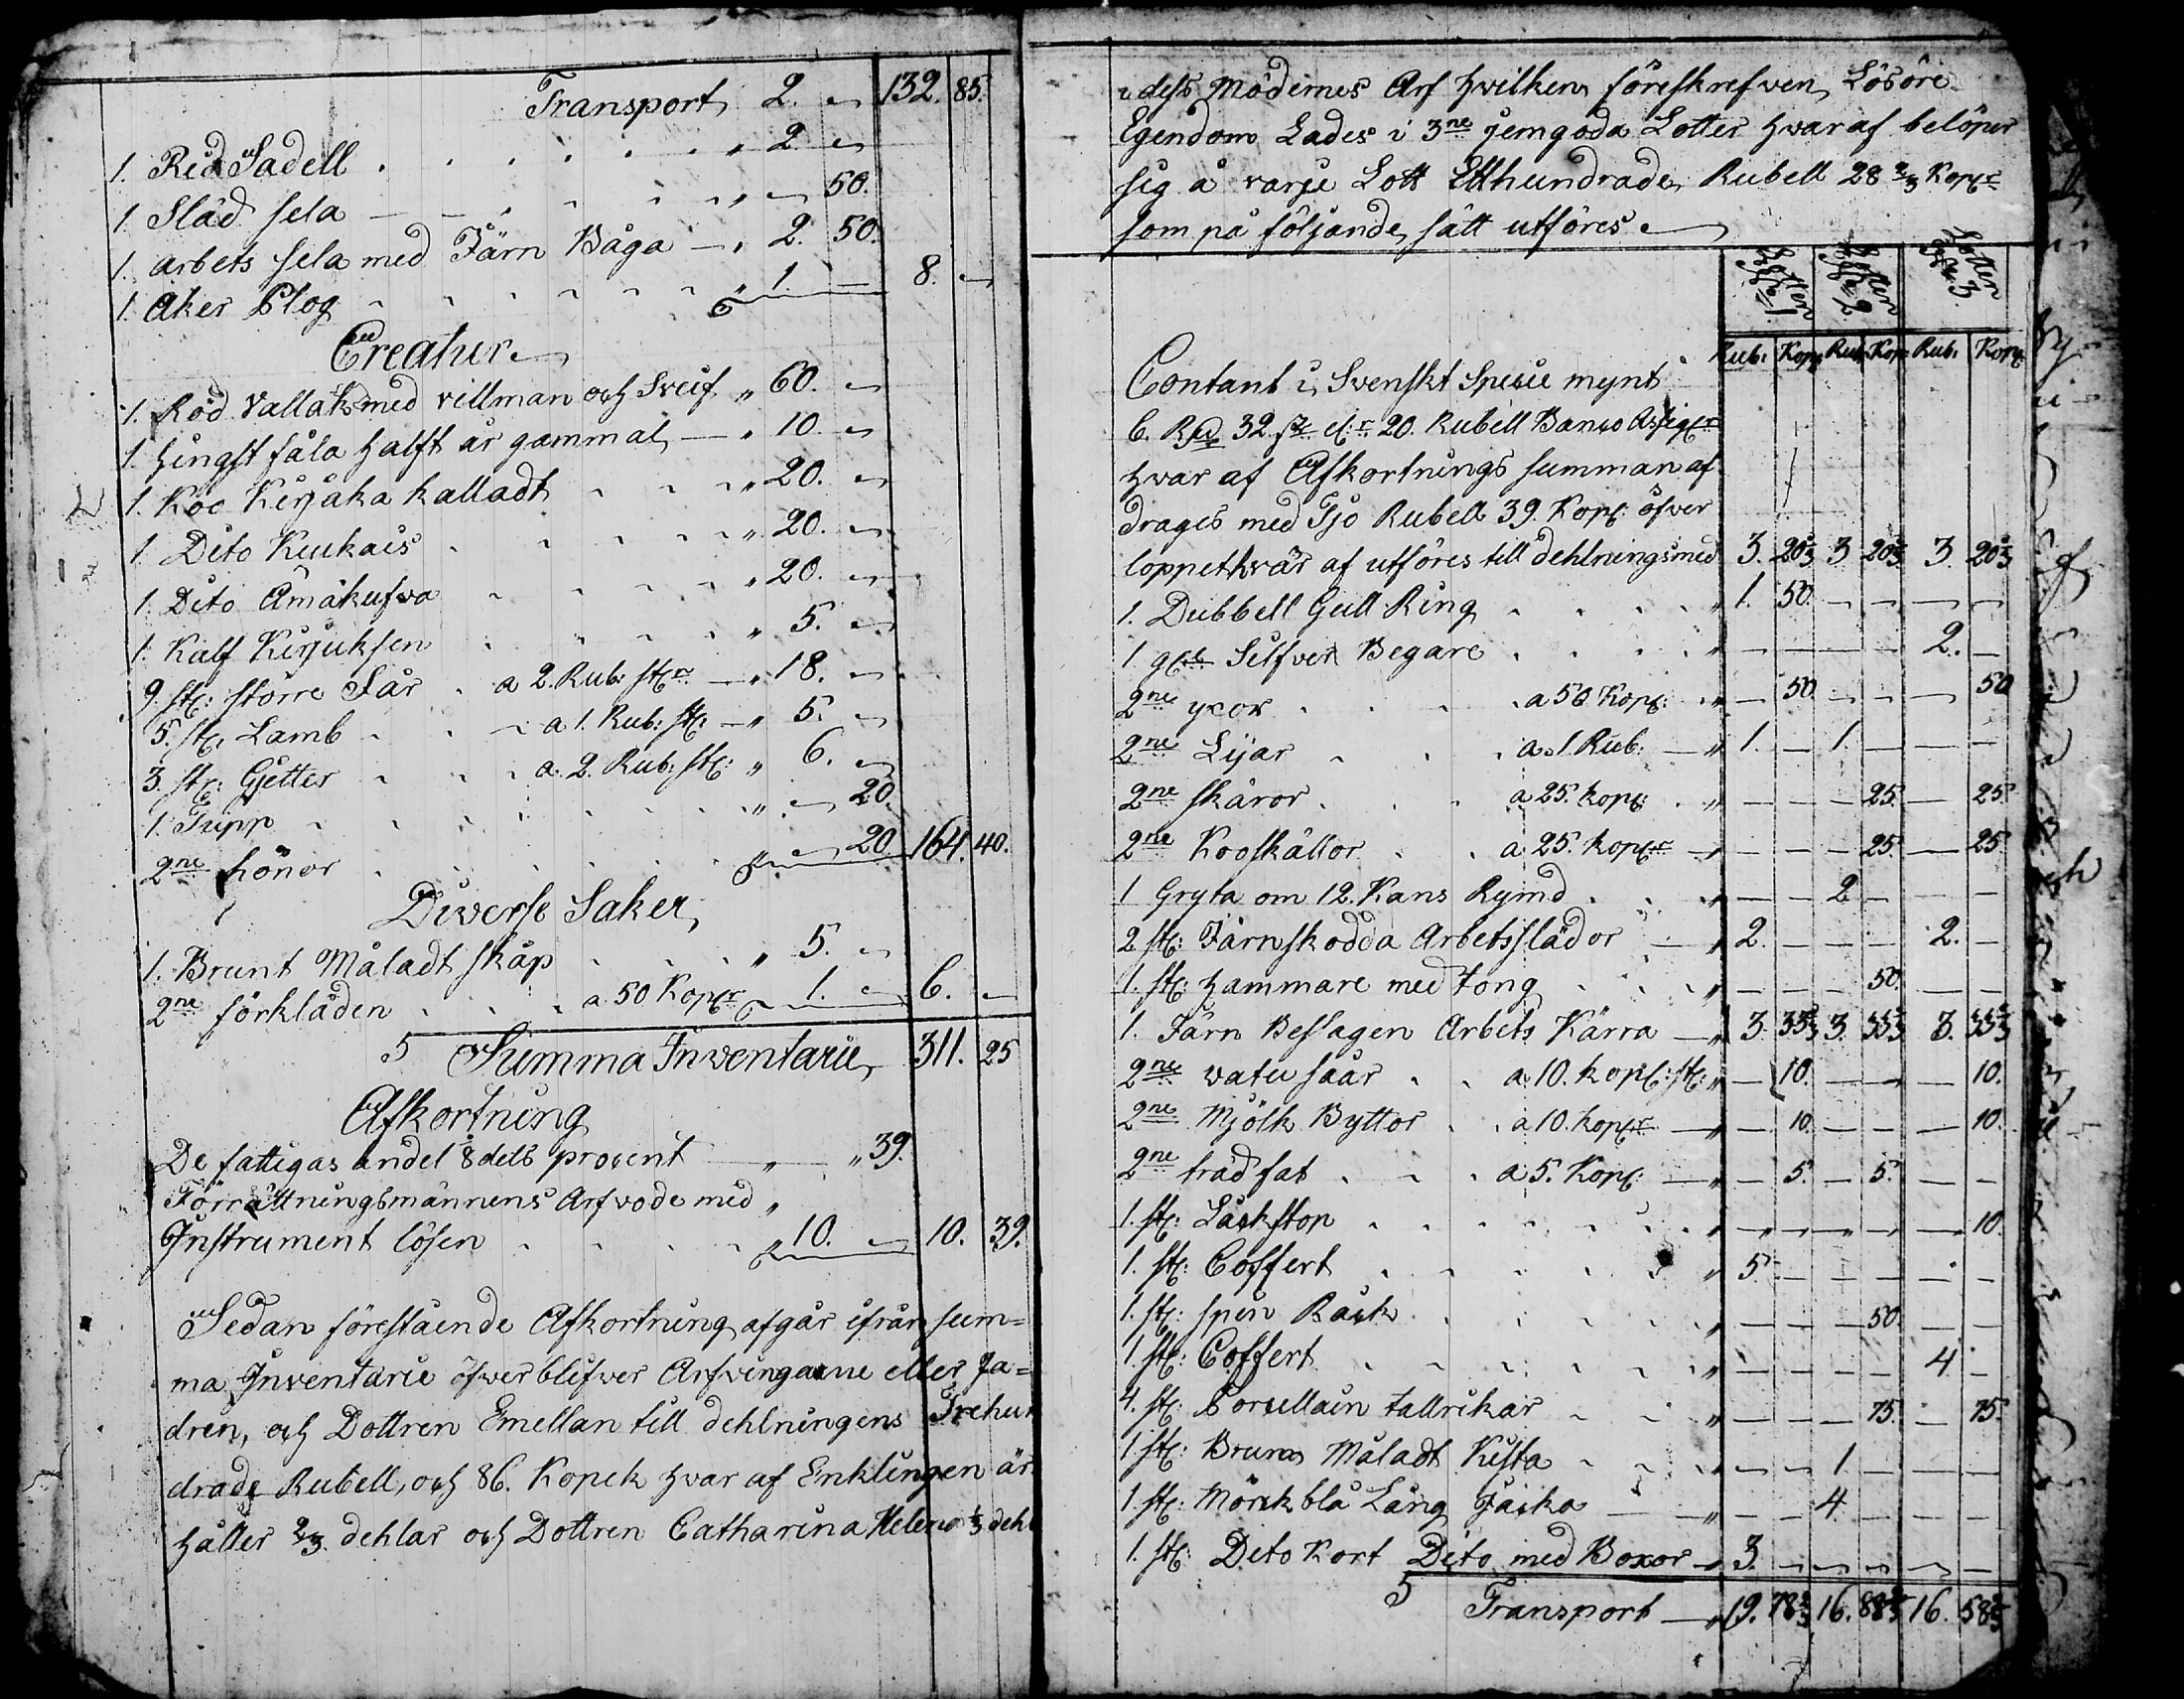 Transport 2. — 132. 85.
1. Rid Sadell . . . . . . „ 2 —
1 Släd sela — — . . . . „ — 50.
1. arbets sela med Järn Båga — „ 2. 50.
1. Åker Plog . . . . . . „ 1. — 8. —
Creatur
1. Röd Vallak med villman och Sveif „ 60. —
1. hingst fåla halft år gammal — „ 10. —
1. Koo Kirjaka kalladt . . . „ 20. —
1 Dito Kiukais . . . . . „ 20. —
1. Dito Ämäkufva . . . . „ 20. —
1. Kalf Kirjuksen . . . . „ 5. —
9. st: större Får . a 2. Rub: str — „ 18. —
5. st: Lamb . . . a 1. Rub: st: — „ 5. —
3. st: Gjetter . . . a. 2. Rub: st: „ 6. —
1. Tupp . . . . . . . „ — 20.
2ne hönor . . . . . . — 20 164. 40.
Diverse Saker
1. Brunt Måladt skåp . . . „ 5. —
2ne förkläden . . . a 50 Kopr 1. — 6. —
Summa Inventarie 311. 25
Afkortning
De fattigas andel 8dels procent — „ — „ 39.
Förrättningsmännens Arfvode med „
Instrument lösen . . . . 10. — 10. 39.
Sedan föreståinde Afkortning afgår ifrån sum=
ma Inventarie öfwerblifver Arfvingarne eller Fa=
dren, och Dottren Emellan till dehlningens Trehun
drade Rubell, och 86. Kopek hvar af Enklingen är
håller 2/3. dehlar och Dottren Catharina Helena 1/3 dehl
i dess Mödernes Arf hvilken föreskrefven Lösöre
Egendom Lades i 3ne jemgoda Lotter hvaraf belöper
sig å varje Lott Etthundrade Rubell 28 2/3 Kopr
som på följande sätt utföres —
Lotten No 1 Lotten No 2. Lotten No 3.
Rub: Kop: Rub: Kop: Rub: Kop:
Contant i Svenskt Specie mynt
6. Rd 32 s el:r 20. Rubell Banco Assigr
hvar af Afkortnings summan af
drages med Tjo Rubell 39. Kop: öfver
loppet hvar af utföres till dehlnings med 3. 20 1/3 3 20 1/3 3. 20 1/3
1. Dubbell Gull Ring . . . . „ 1. 50. — — — —
1 Silfver Begare . . . . „ — — — — 2. —
2ne yxor . . . . a 50 Kop: . „ — 50. — — — 50
2ne Lijar . . . a 1 Rub: — „ 1. — 1. — — —
2ne skäror . . . a 25. kop: . „ — — — 25. — 25.
2ne Kooskällor . . a 25. kopr — „ — — — 25. — 25
1 Gryta om 12. Kans Rymd . . . „ — — 2. — — —
2 st: Järnskodda Arbetsslädor — „ 2. — — — 2. —
1. st: hammare med tong . . . „ — — — 50. — —
1. Järn Beslagen Arbets Kärra — „ 3. 33 1/3 3. 33 1/3 3. 33 1/3
2ne vatu såar . . a 10. kop: st: „ — 10. — — — 10.
2ne Mjölk Byttor . . a 10. kopr — „ — 10. — — — 10.
2ne träd fat . . . a 5. Kop: — „ — 5. — 5. — —
1. st: Läckstop . . . . . . „ — — — — — 10.
1. st: Coffert . . . . . „ 5. — — — — —
1. st: spin Råck . . . . . „ — — — 50. — —
1 st: Coffert . . . . . „ — — — — 4. —
4. st: Porcellain tallrikar . . . „ — — — 75. — 75.
1 st: Bruna Måladt Kista . . . „ — — 1. — — —
1. st: Mörckblå Lång Jacka — „ — — 4. — — —
1. st: Deto Kort Dito med Boxor — „ 3. — — — — —
Transport — „ 19. 78 2/3 16. 88 2/3 16. 58 2/3